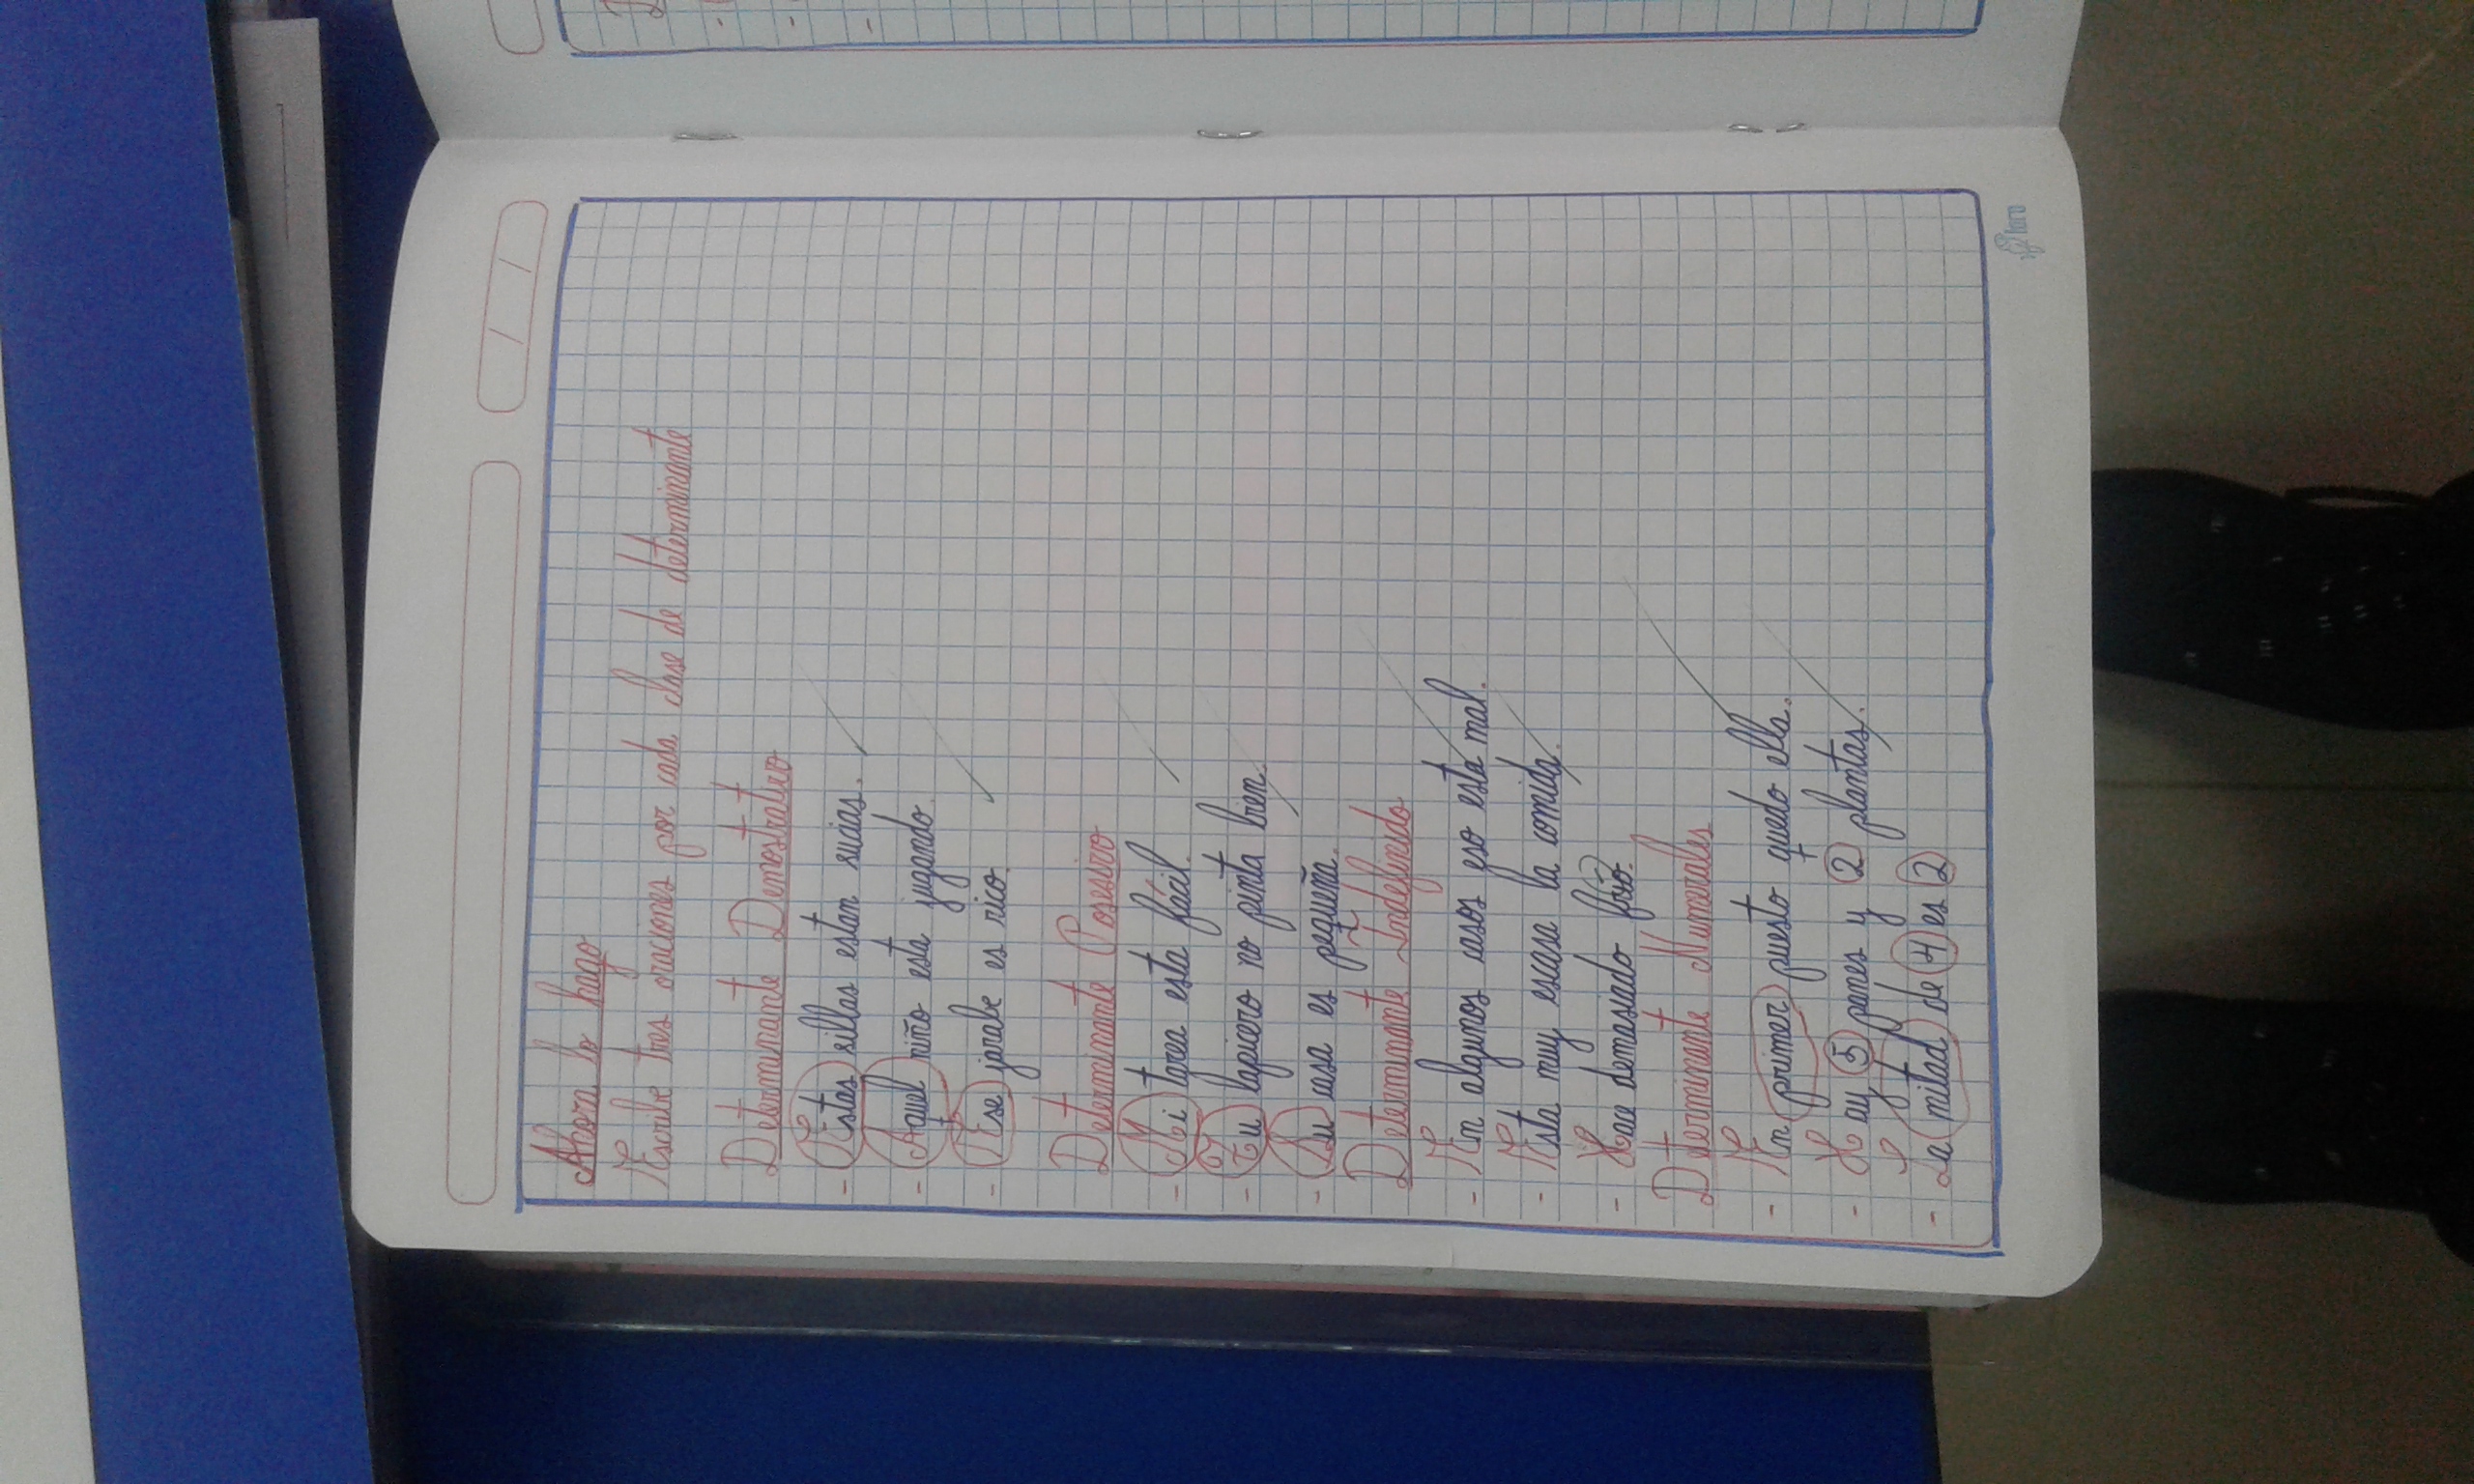 Ahora lo hago
Escribe tres oraciones por cada clase de determinante
Determinante Demostrativo
- Estas sillas estan sucias.
- Aquel niño esta jugando.
- Ese jarabe es rico.
Determinante Posesivo
- Mi tarea esta fácil.
- Tu lapicero no pinta bien.
- Su casa es pequeña.
Determinante Indefinido
- En algunos casos eso esta mal.
- Esta muy escasa la comida.
- Hace demasiado frio.
Determinante Numerales
- En primer puesto quedo ella.
- Hay 5 panes y 2 plantas.
- La mitad de 4 es 2
loro